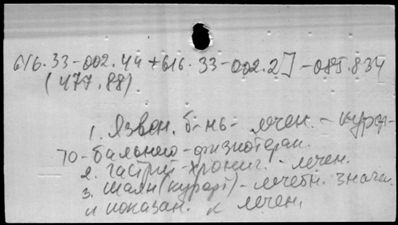 616.33-002.44+616.33-002.2]-085.834
(477.88)
1. Язвон. б-нь - лечен. - курор-
то-бальнео-физиотерап.
2. гастрит-хронич. - лечен.
3. Шаян (курорт) - лечебн. значен.
и показан. к лечен.